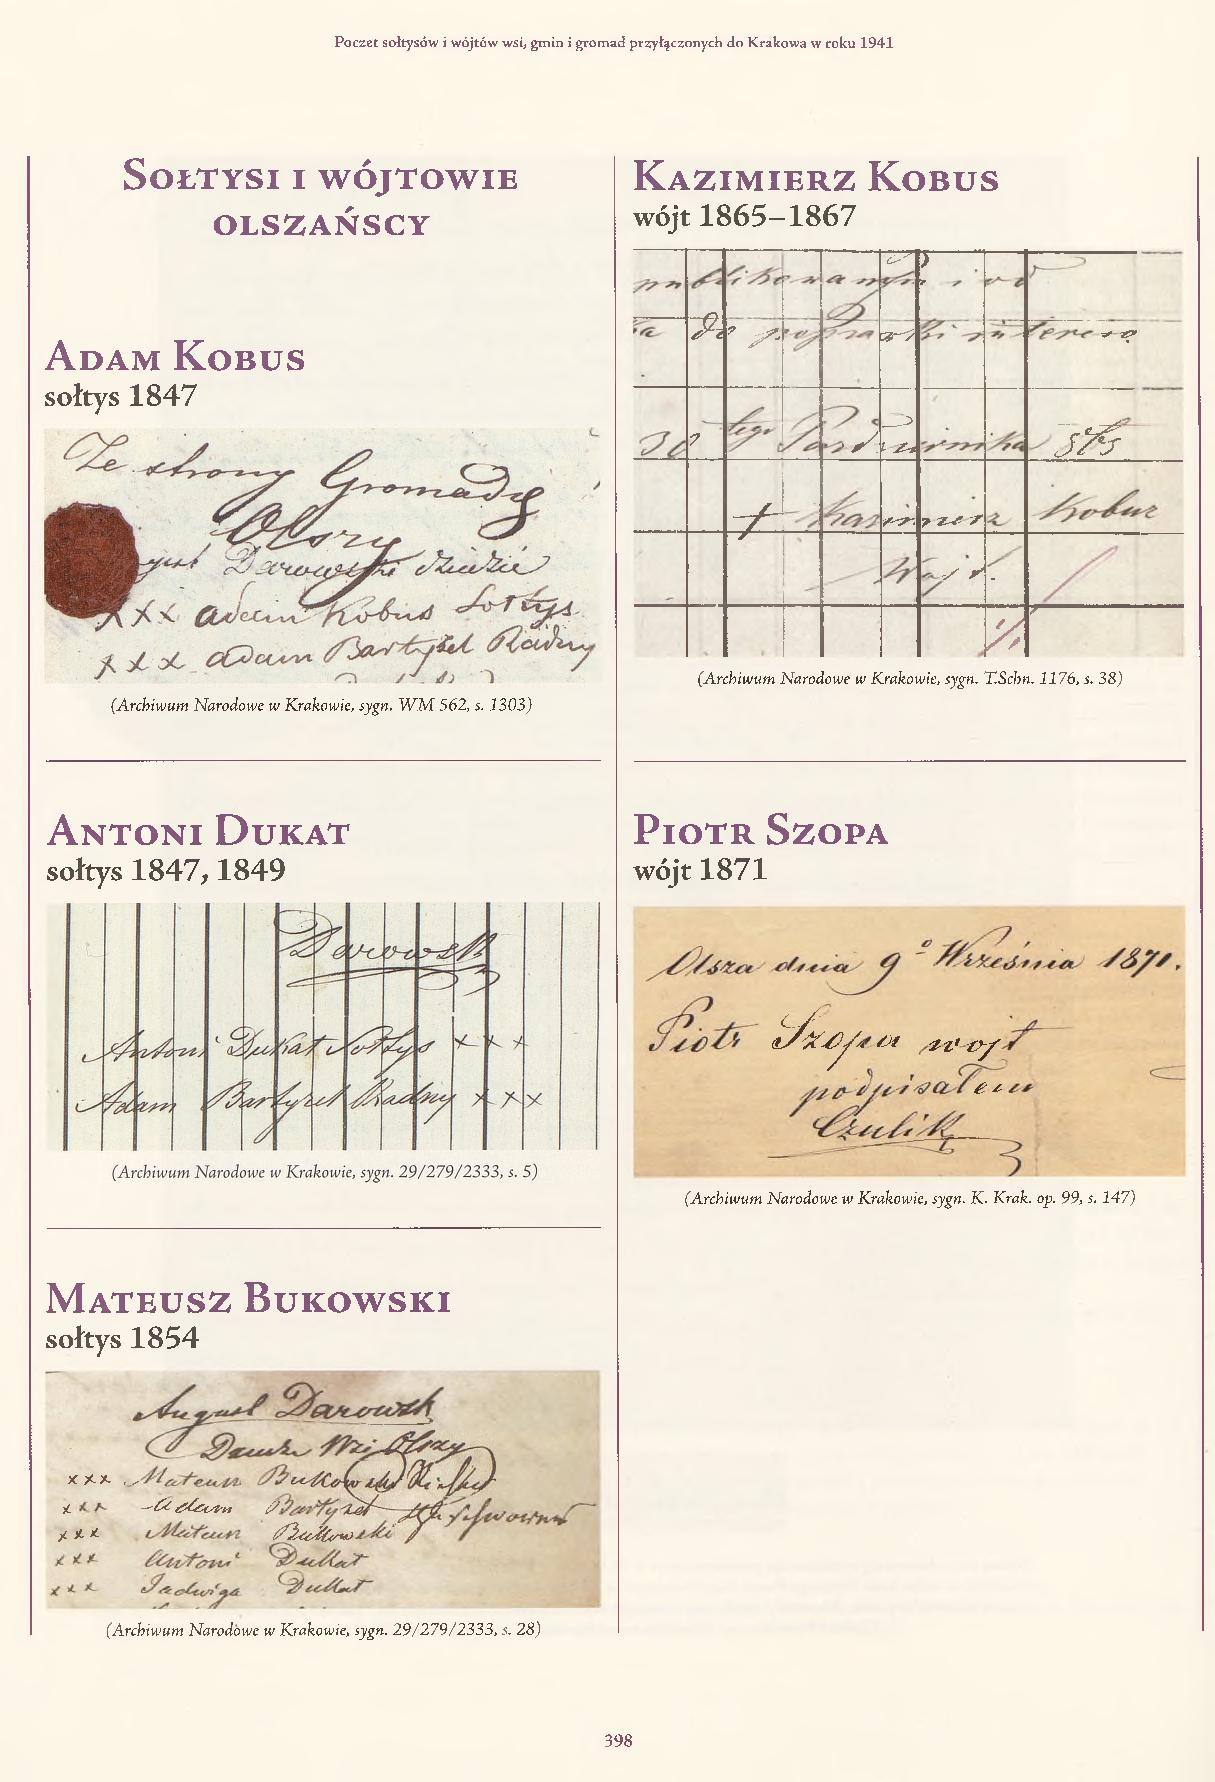 Poczet sołtysów i wójtów wsi, gmin i gromad przyłączonych do Krakowa w roku 1941
Sołtysi i wójtowie
olszańscy
Adam Kobus
sołtys 1847
Ze strony Gromady
Olszy
Darowski dziedzic
xxx Adam Kobus Sołtys
xxx Adam Bartyzel Radny
(Archiwum Narodowe w Krakowie, sygn. WM 562, s. 1303)
Antoni Dukat
sołtys 1847, 1849
Darowski
Antoni Dukat Sołtys xxx
Adam Bartyzel Radny xxx
(Archiwum Narodowe w Krakowie, sygn. 29/279/2333, s. 5)
Mateusz Bukowski
sołtys 1854
August Darowsk
Wsi Olszy
xxx Mateusz Bukowski
xxx Adam Bartyzel
xxx Mateusz Bukowski
xxx Antoni Dukat
xxx Jadwiga Dukat
(Archiwum Narodowe w Krakowie, sygn. 29/279/2333, s. 28)
Kazimierz Kobus
wójt 1865–1867
publikowanym i od
do poprawki interess
30 tego Pazdziernika 865
+ Kazimierz Kobus
Wojt.
(Archiwum Narodowe w Krakowie, sygn. T.Schn. 1176, s. 38)
Piotr Szopa
wójt 1871
Olsza dnia 9º Września 1871.
Piotr Szopa wojt
podpisałem
Czulik
(Archiwum Narodowe w Krakowie, sygn. K. Krak. op. 99, s. 147)
398